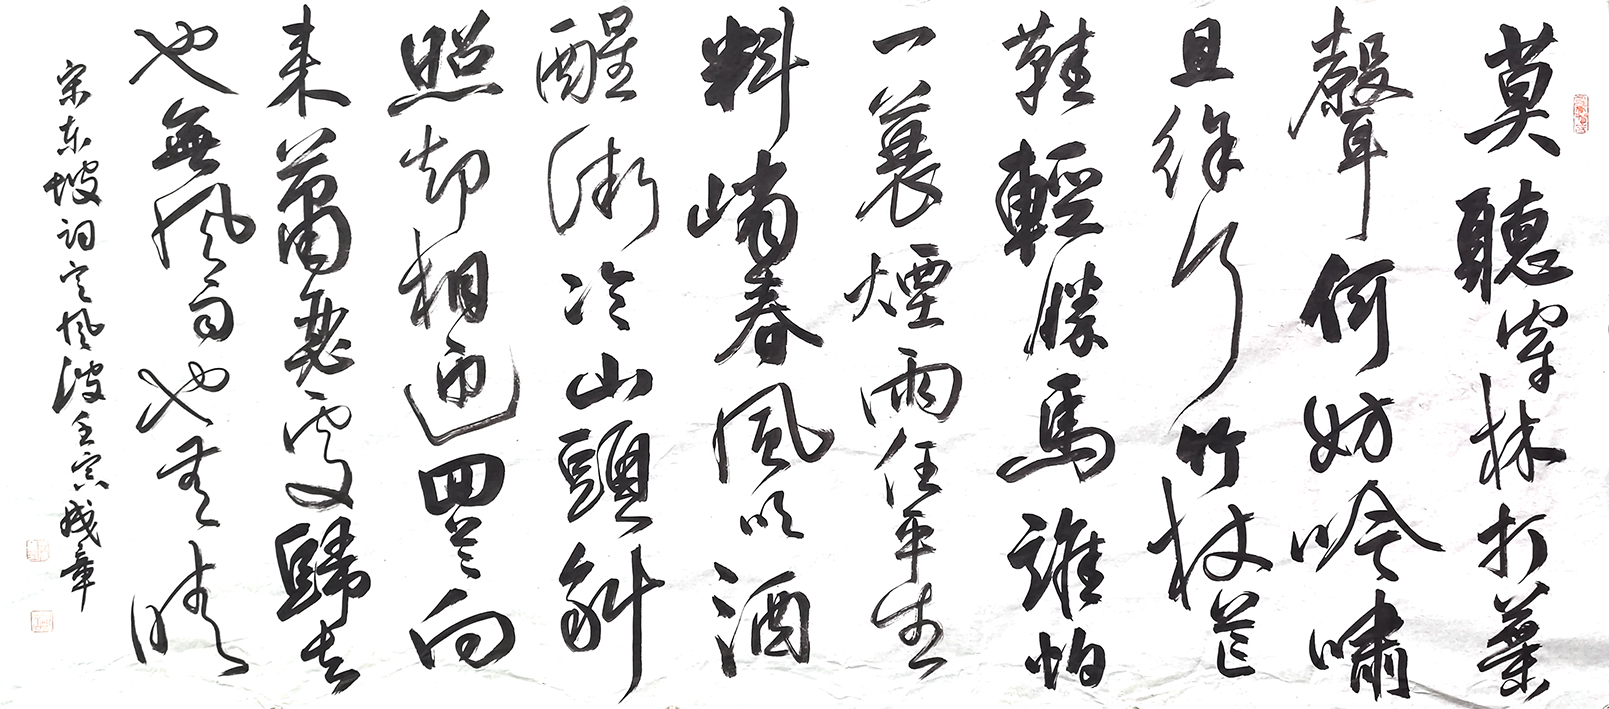 莫聽穿林打葉
聲何妨吟嘯
且徐行竹杖芒
鞋輕勝馬誰怕
一蓑煙雨任平生
料峭春風吹酒
醒微冷山頭斜
照却相迎回首向
来蕭瑟處歸去
也無風雨也无晴
宋东坡词定风波壬寅成章